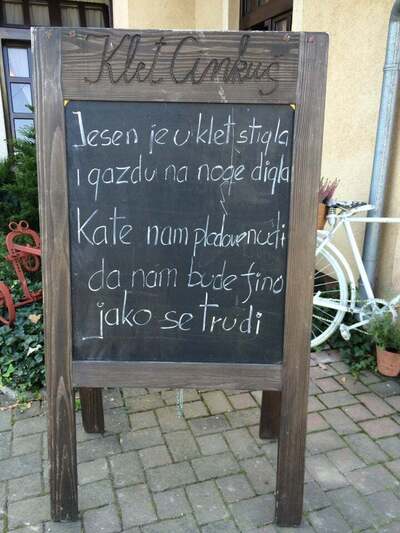 Klet Cinkuš
Jesen je u klet stigla
i gazdu na noge digla
Kate nam plodove nudi
da nam bude fino
jako se trudi